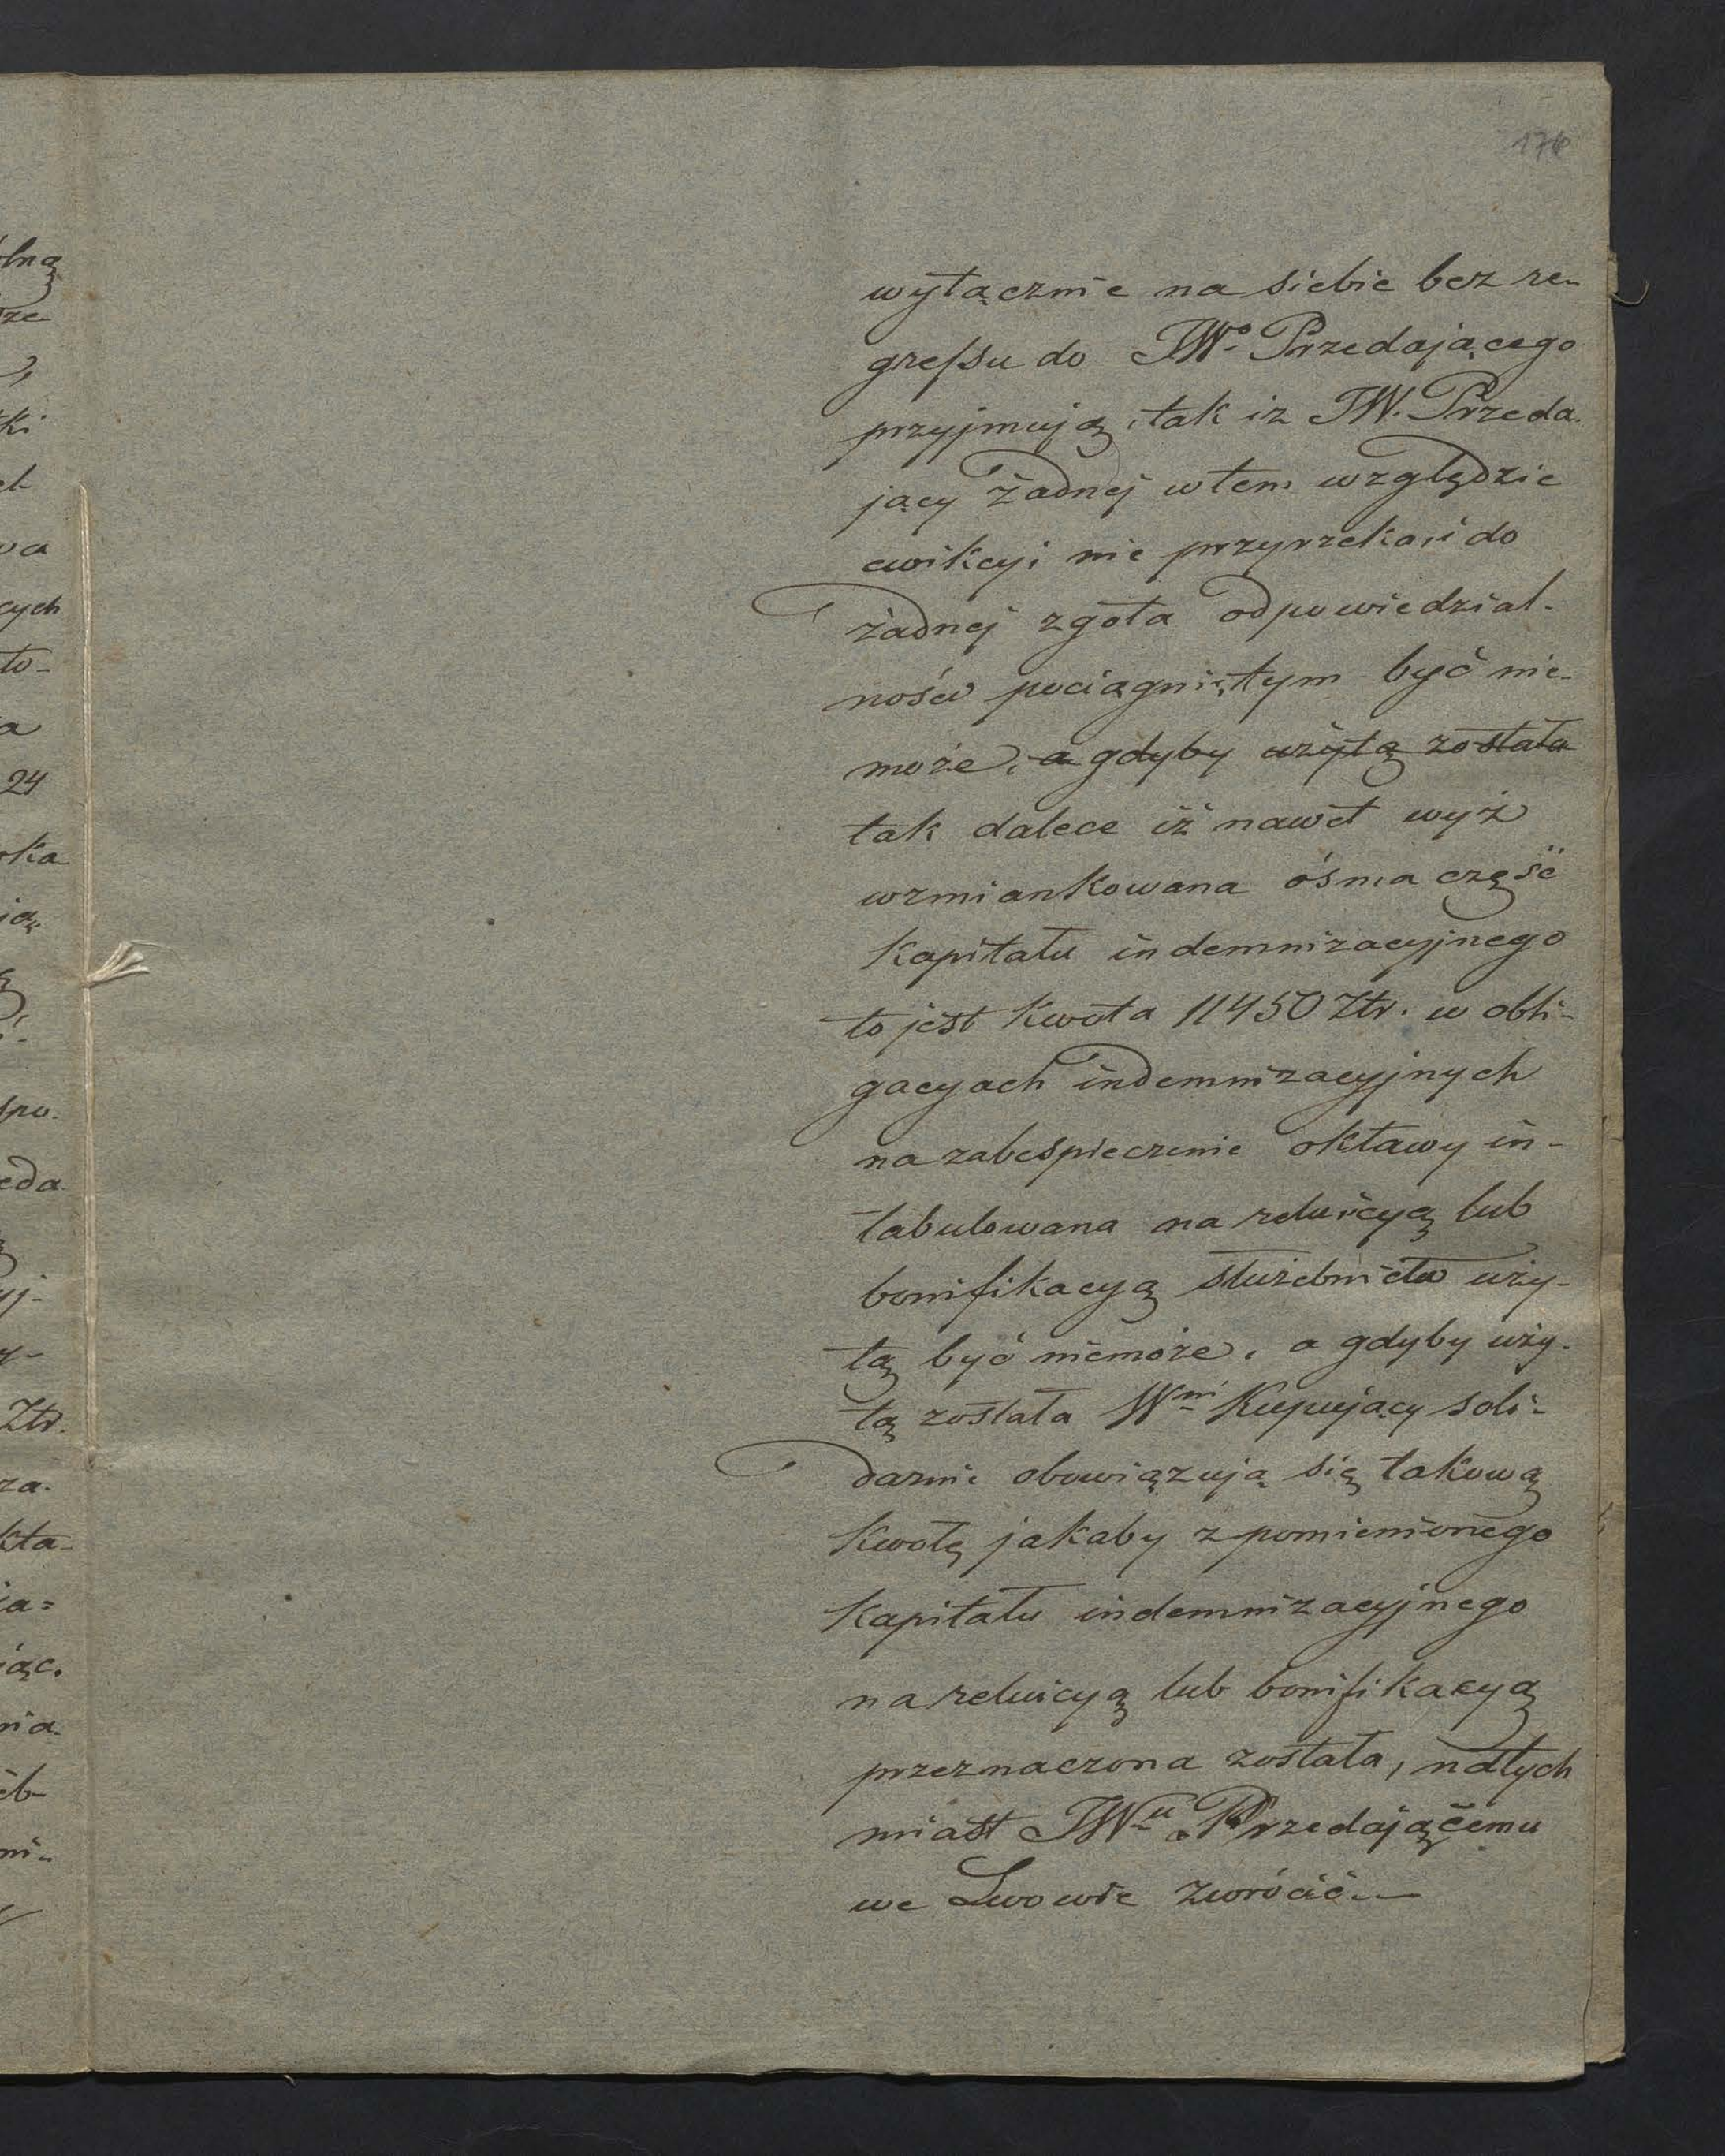 176
wyłącznie na siebie bez re-
gressu do JWo Przedającego
przyjmują, tak iż JW. Przeda-
jący żadnej w tem względzie
ewikcyi nie przyrzeka, i do
żadnej zgoła odpowiedzial-
ności pociągniętym być nie-
może, a gdyby użytą została
tak dalece iż nawet wyż
wzmiankowana ósma część
kapitału indemnizacyjnego
to jest kwota 11450 Ztr. w obli-
gacyach indemnizacyjnych
na zabespieczenie oktawy in-
tabulowana na reluicyą lub
bonifikacyą służebnictw uży-
tą być niemoże, a gdyby uży-
tą została Wni Kupujący soli-
darnie obowiązują się takową
kwotę jakaby z pomienionego
kapitału indemnizacyjnego
na reluicyą lub bonifikacyą
przeznaczona została, natych
miast JWu Przedającemu
we Lwowie zwrócić.—
lną
ki
wa
cych
to-
a
24
oka
spo-
eda
yj-
y-
Ztr.
za-
kta-
ia=
iąc.
nia-
eb-
ni-